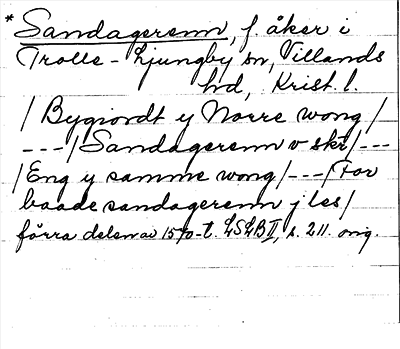 *Sandagerenn, f. åker i
Trolle-Ljungby sn, Villands
hd, Krist. l.
/Bygiordt y Norre wong/
---/Sandagerenn v skr/---
/Eng y samme wong/---/For
baade sandagerenn j les/
förra delen av 1570-t. LSLB II, s. 211. orig.